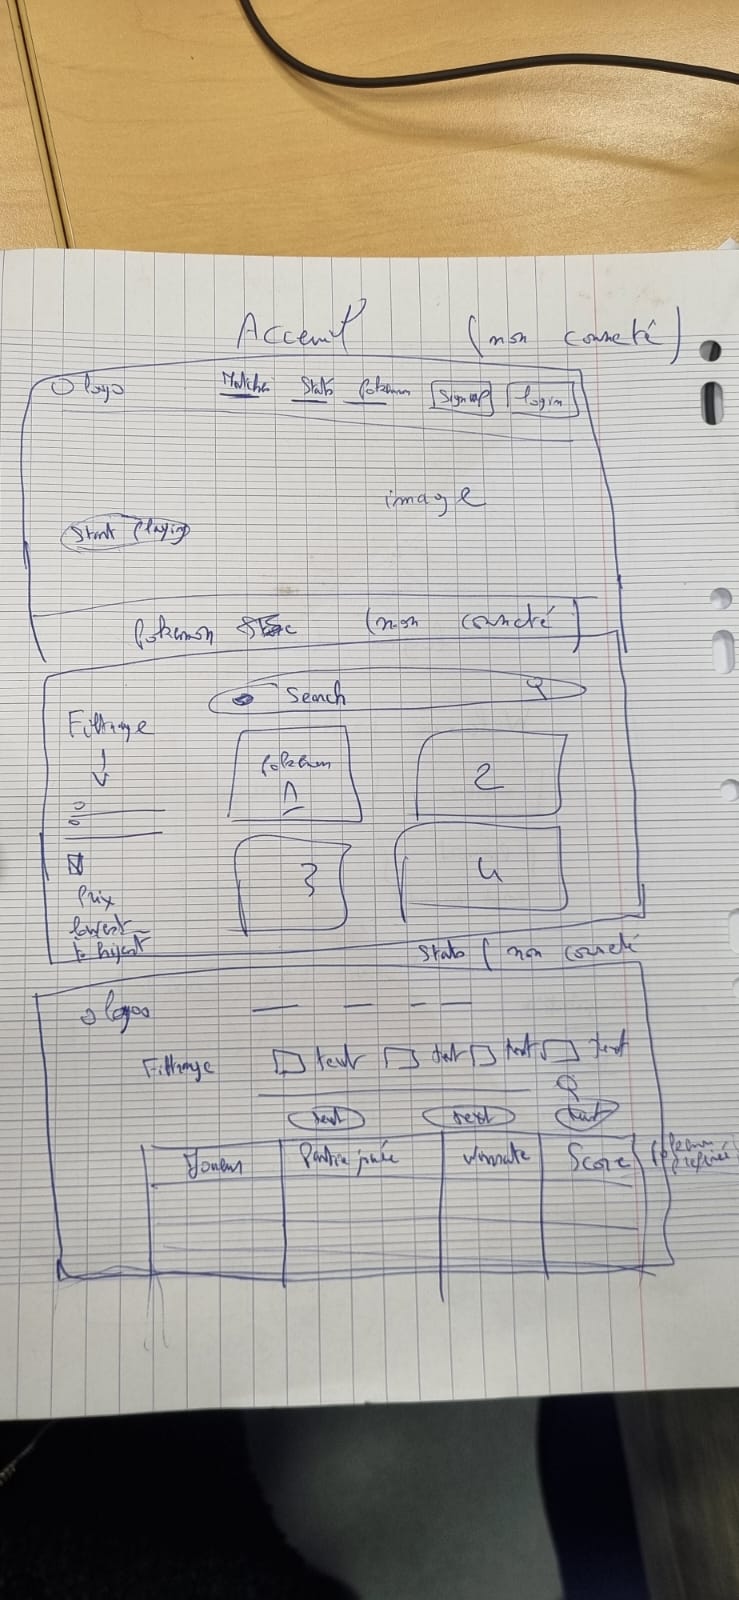 Acceuil (non connecté)
logo Matches Stats Pokemon Signup login
image
Start Playing
Pokemon (non connecté)
Search
Filtrage
Pokemon 1 2
3 4
Prix
lowest
to highest
Stats (non connecté
logo
Filtrage text text text text
text text text
Joueur Partie jouée winrate Score